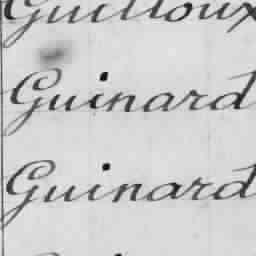 Guilloux
Guinard
Guinard